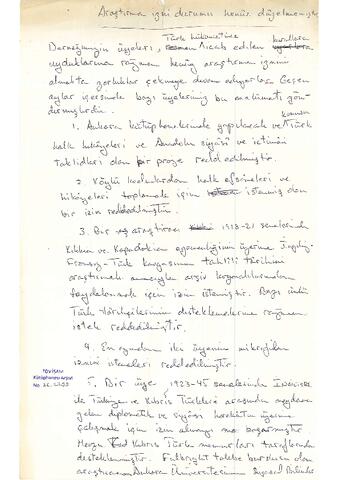 Araştırma izni durumu henüz düzelmemiştir
Türk hükümetince kurallara
Derneğimizin üyeleri, icab edilen
uyduklarına rağmen henüz araştırma iznini
almakta zorluklar çekmeye devam ediyorlar. Geçen
aylar içersinde bazı üyelerimiz bu malûmatı gön-
dermişlerdir.
1. Ankara kütüphanelerinde yapılacak ve Türk
halk hikâyeleri ve Anadolu siyâsî ve ictimâî
taklidleri dan bir proje reddedilmiştir.
2. Köylü kadınlardan halk efsaneleri ve
hikâyeleri toplamak için istenmiş olan
bir izin reddedilmiştir.
3. Bir araştırıcı 1918-21 senelerinde
Kilikya ve Kapadokya üzerine İngiliz-
Fransız-Türk kavgasının tarihini
araştırmak amacıyla arşiv kaynaklarından
faydalanmak için izin istemiştir. Bazı ünlü
Türk tarihçilerinin desteklemelerine rağmen
istek reddedilmiştir.
4. En aşağıdan iki üyenin mikrofilm
iznini istemeleri reddedilmiştir.
5. Bir üye 1923-45 senelerinde İngiltere
ile Türkiye ve Kıbrıs Türkleri arasında meydana
gelen diplomatik ve siyâsî hareketin üzerine
çalışmak için izin almayı başarmıştır.
Kıbrıs Türk memurları tarafından
desteklenmiştir. Fulbright talebe bursu olan
araştırmanın Ankara Üniversitesinin Siyasal Bilimler
TÜVİSAM
Kütüphanesi Arşivi
No